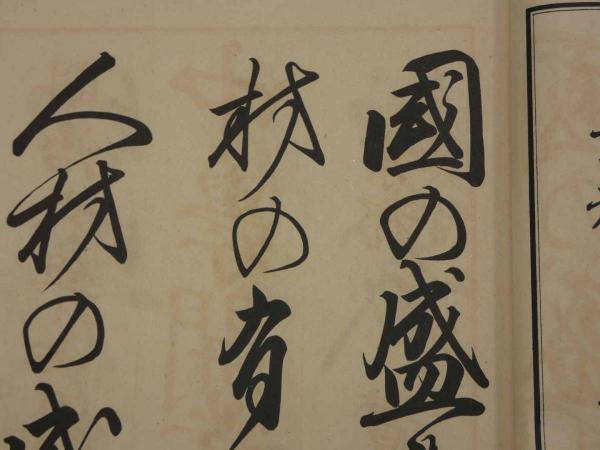 國の盛
材の有
人材の盛